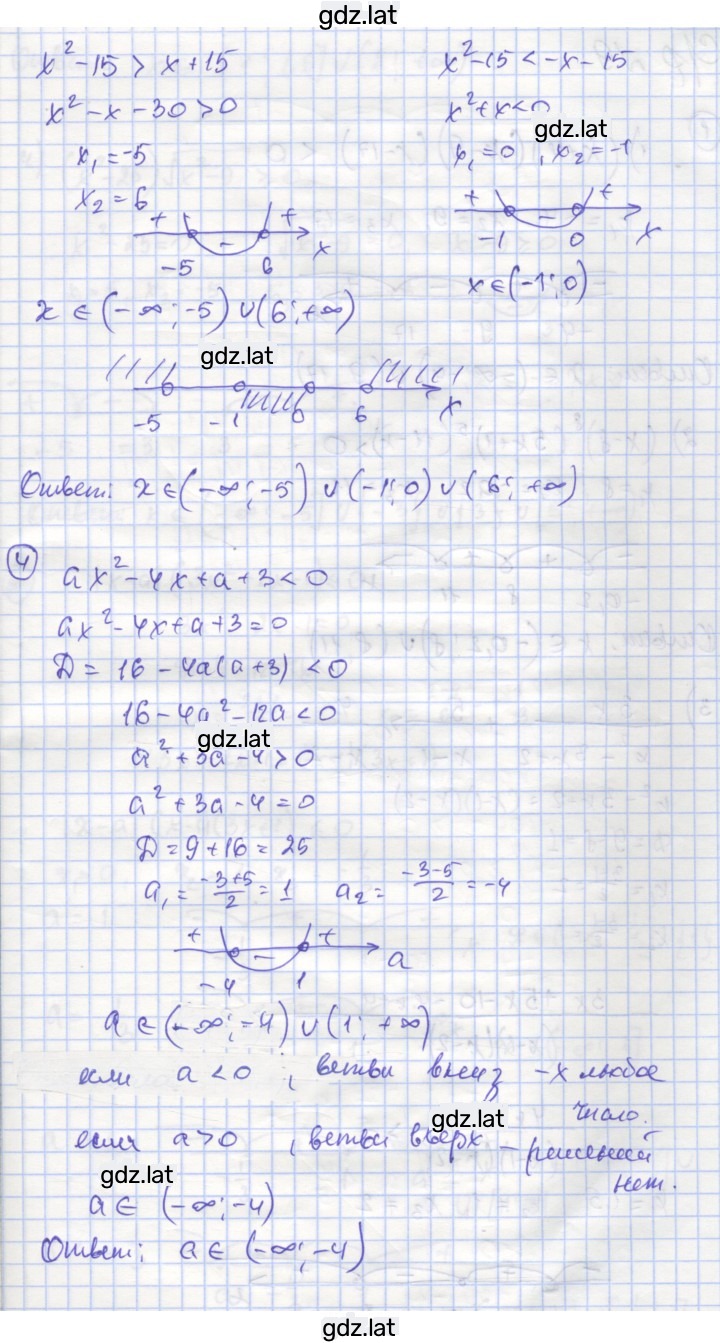 gdz.lat
x² - 15 > x + 15
x² - x - 30 > 0
x₁ = -5
x₂ = 6
+ - + x
-5 6
x ∈ (-∞; -5) ∪ (6; +∞)
x² - 15 < -x - 15
x² + x < 0
gdz.lat
x₁ = 0, x₂ = -1
+ - + x
-1 0
x ∈ (-1; 0)
gdz.lat
-5 -1 0 6 x
Ответ: x ∈ (-∞; -5) ∪ (-1; 0) ∪ (6; +∞)
4 ax² - 4x + a + 3 < 0
ax² - 4x + a + 3 = 0
Д = 16 - 4a(a + 3) < 0
16 - 4a² - 12a < 0
gdz.lat
a² + 3a - 4 > 0
a² + 3a - 4 = 0
Д = 9 + 16 = 25
a₁ = (-3+5)/2 = 1 a₂ = (-3-5)/2 = -4
+ - + a
-4 1
a ∈ (-∞; -4) ∪ (1; +∞)
если a < 0, ветви вниз - x любое
число.
gdz.lat
если a > 0, ветви вверх - решений
нет.
gdz.lat
a ∈ (-∞; -4)
Ответ: a ∈ (-∞; -4)
gdz.lat